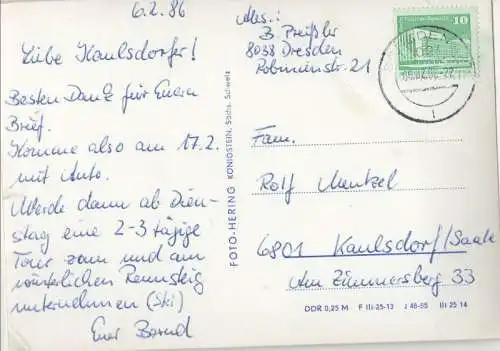 6.2.86
Liebe Kaulsdorfer!
Besten Dank für Euern
Brief.
Komme also am 17.2.
mit Auto.
Werde dann ab Dien-
stag eine 2-3 tägige
Tour zum und am
nörtlichen Rennsteig
unternehmen (Ski)
Euer Bernd
Abs.:
B. Preißler
8038 Dresden
Robminstr. 21
FOTO-HERING KÖNIGSTEIN, Sächs. Schweiz
10
Fam.
Rolf Mentzel
6801 Kaulsdorf/Saale
Am Zimmersberg 33
DDR 0,25 M F III-25-13 J 46-85 III 25 14